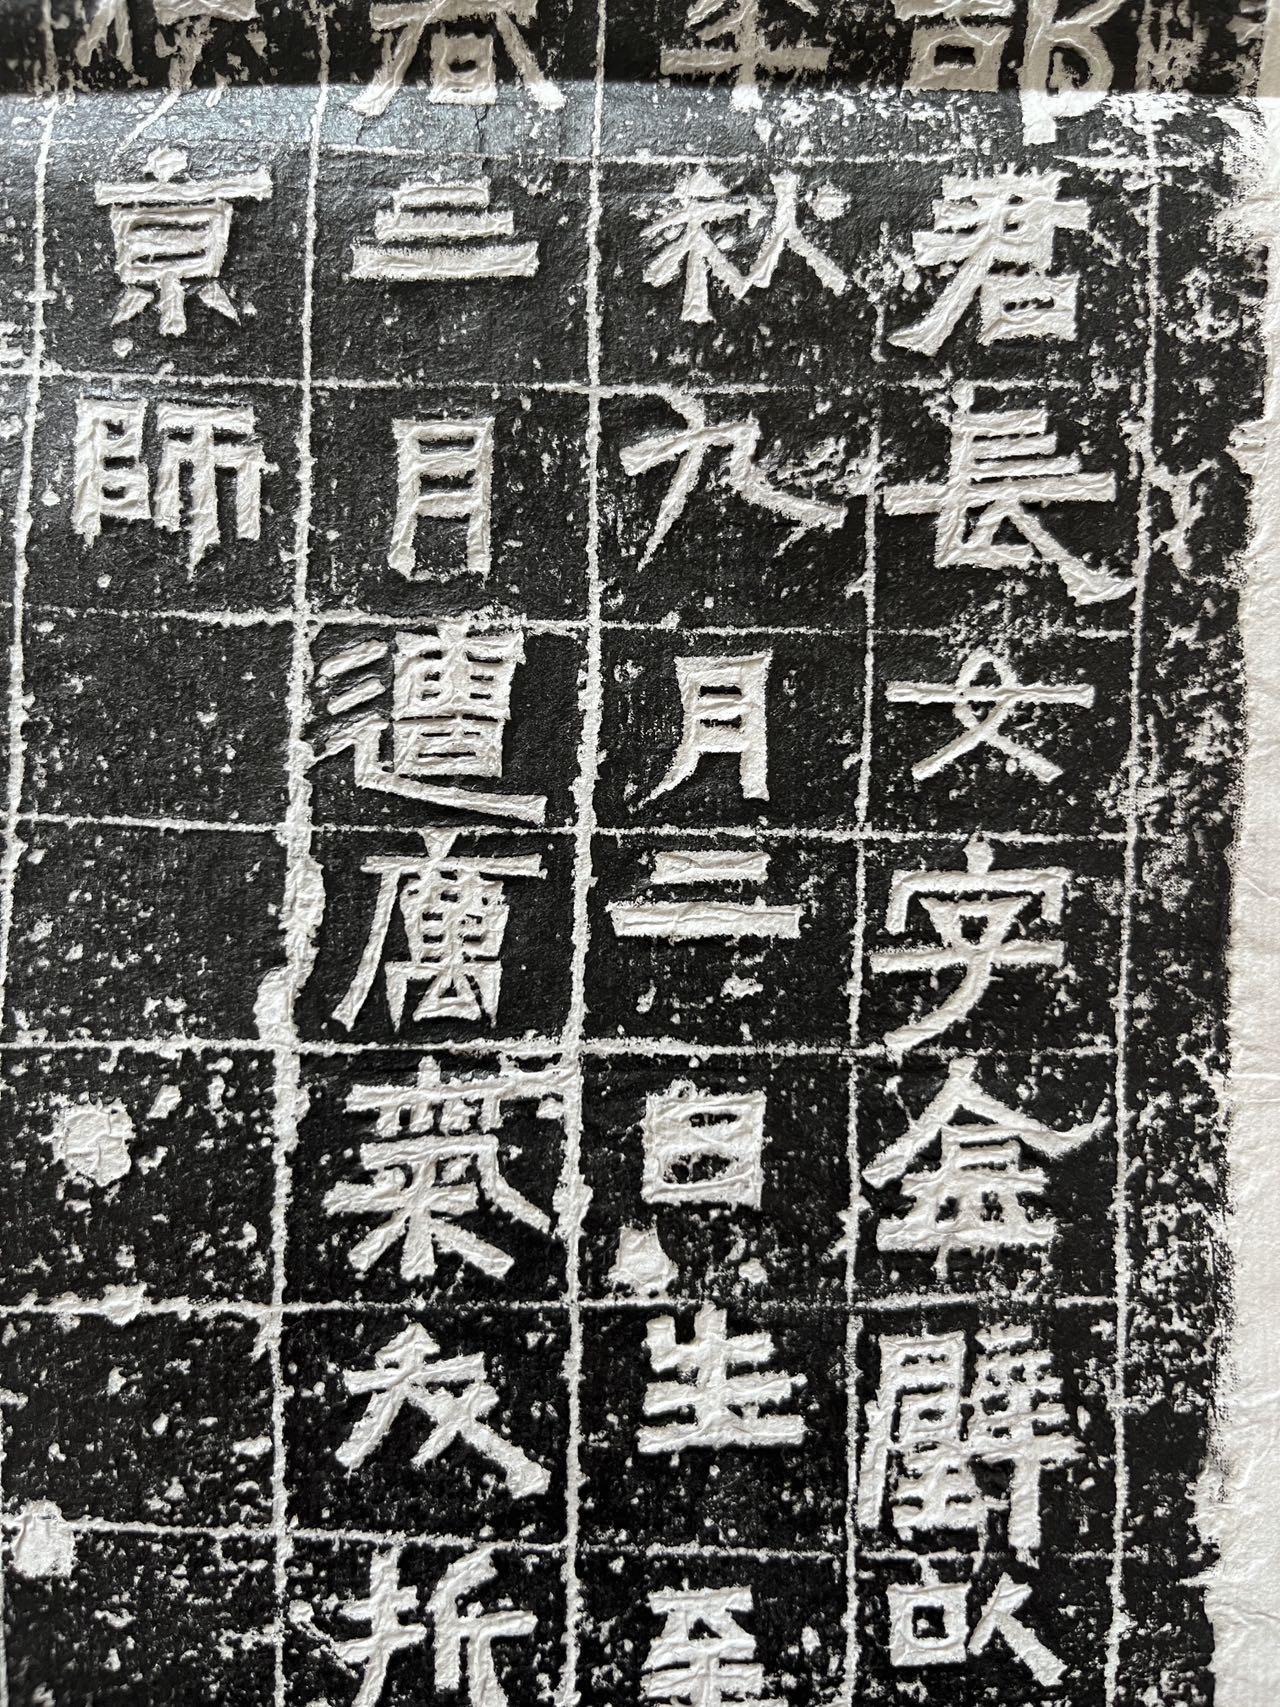 君長女字金璧以
年秋九月二日生至
春三月遭厲氣夭折
京師